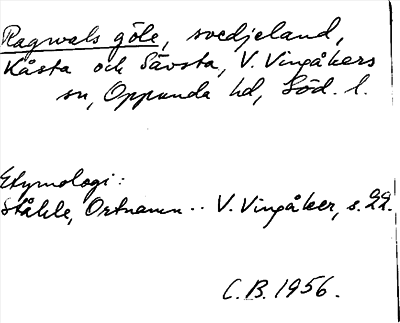 Ragwals göle, svedjeland,
Kåsta och Sävsta, V. Vingåkers
sn, Oppunda hd, Söd. l.
Etymologi:
Ståhle, Ortnamn.. V. Vingåker, s. 22.
C.B. 1956.